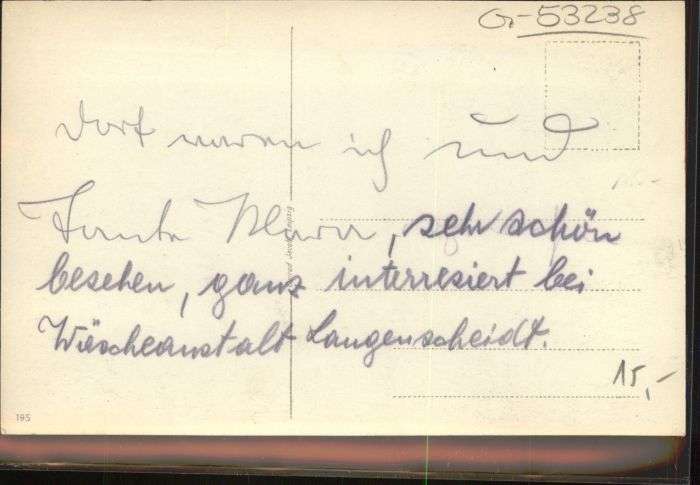 G-53238
Dort waren ich und
Tante Klara, sehr schön
besehen, ganz interresiert bei
Wäscheanstalt Langenscheidt.
15,-
195